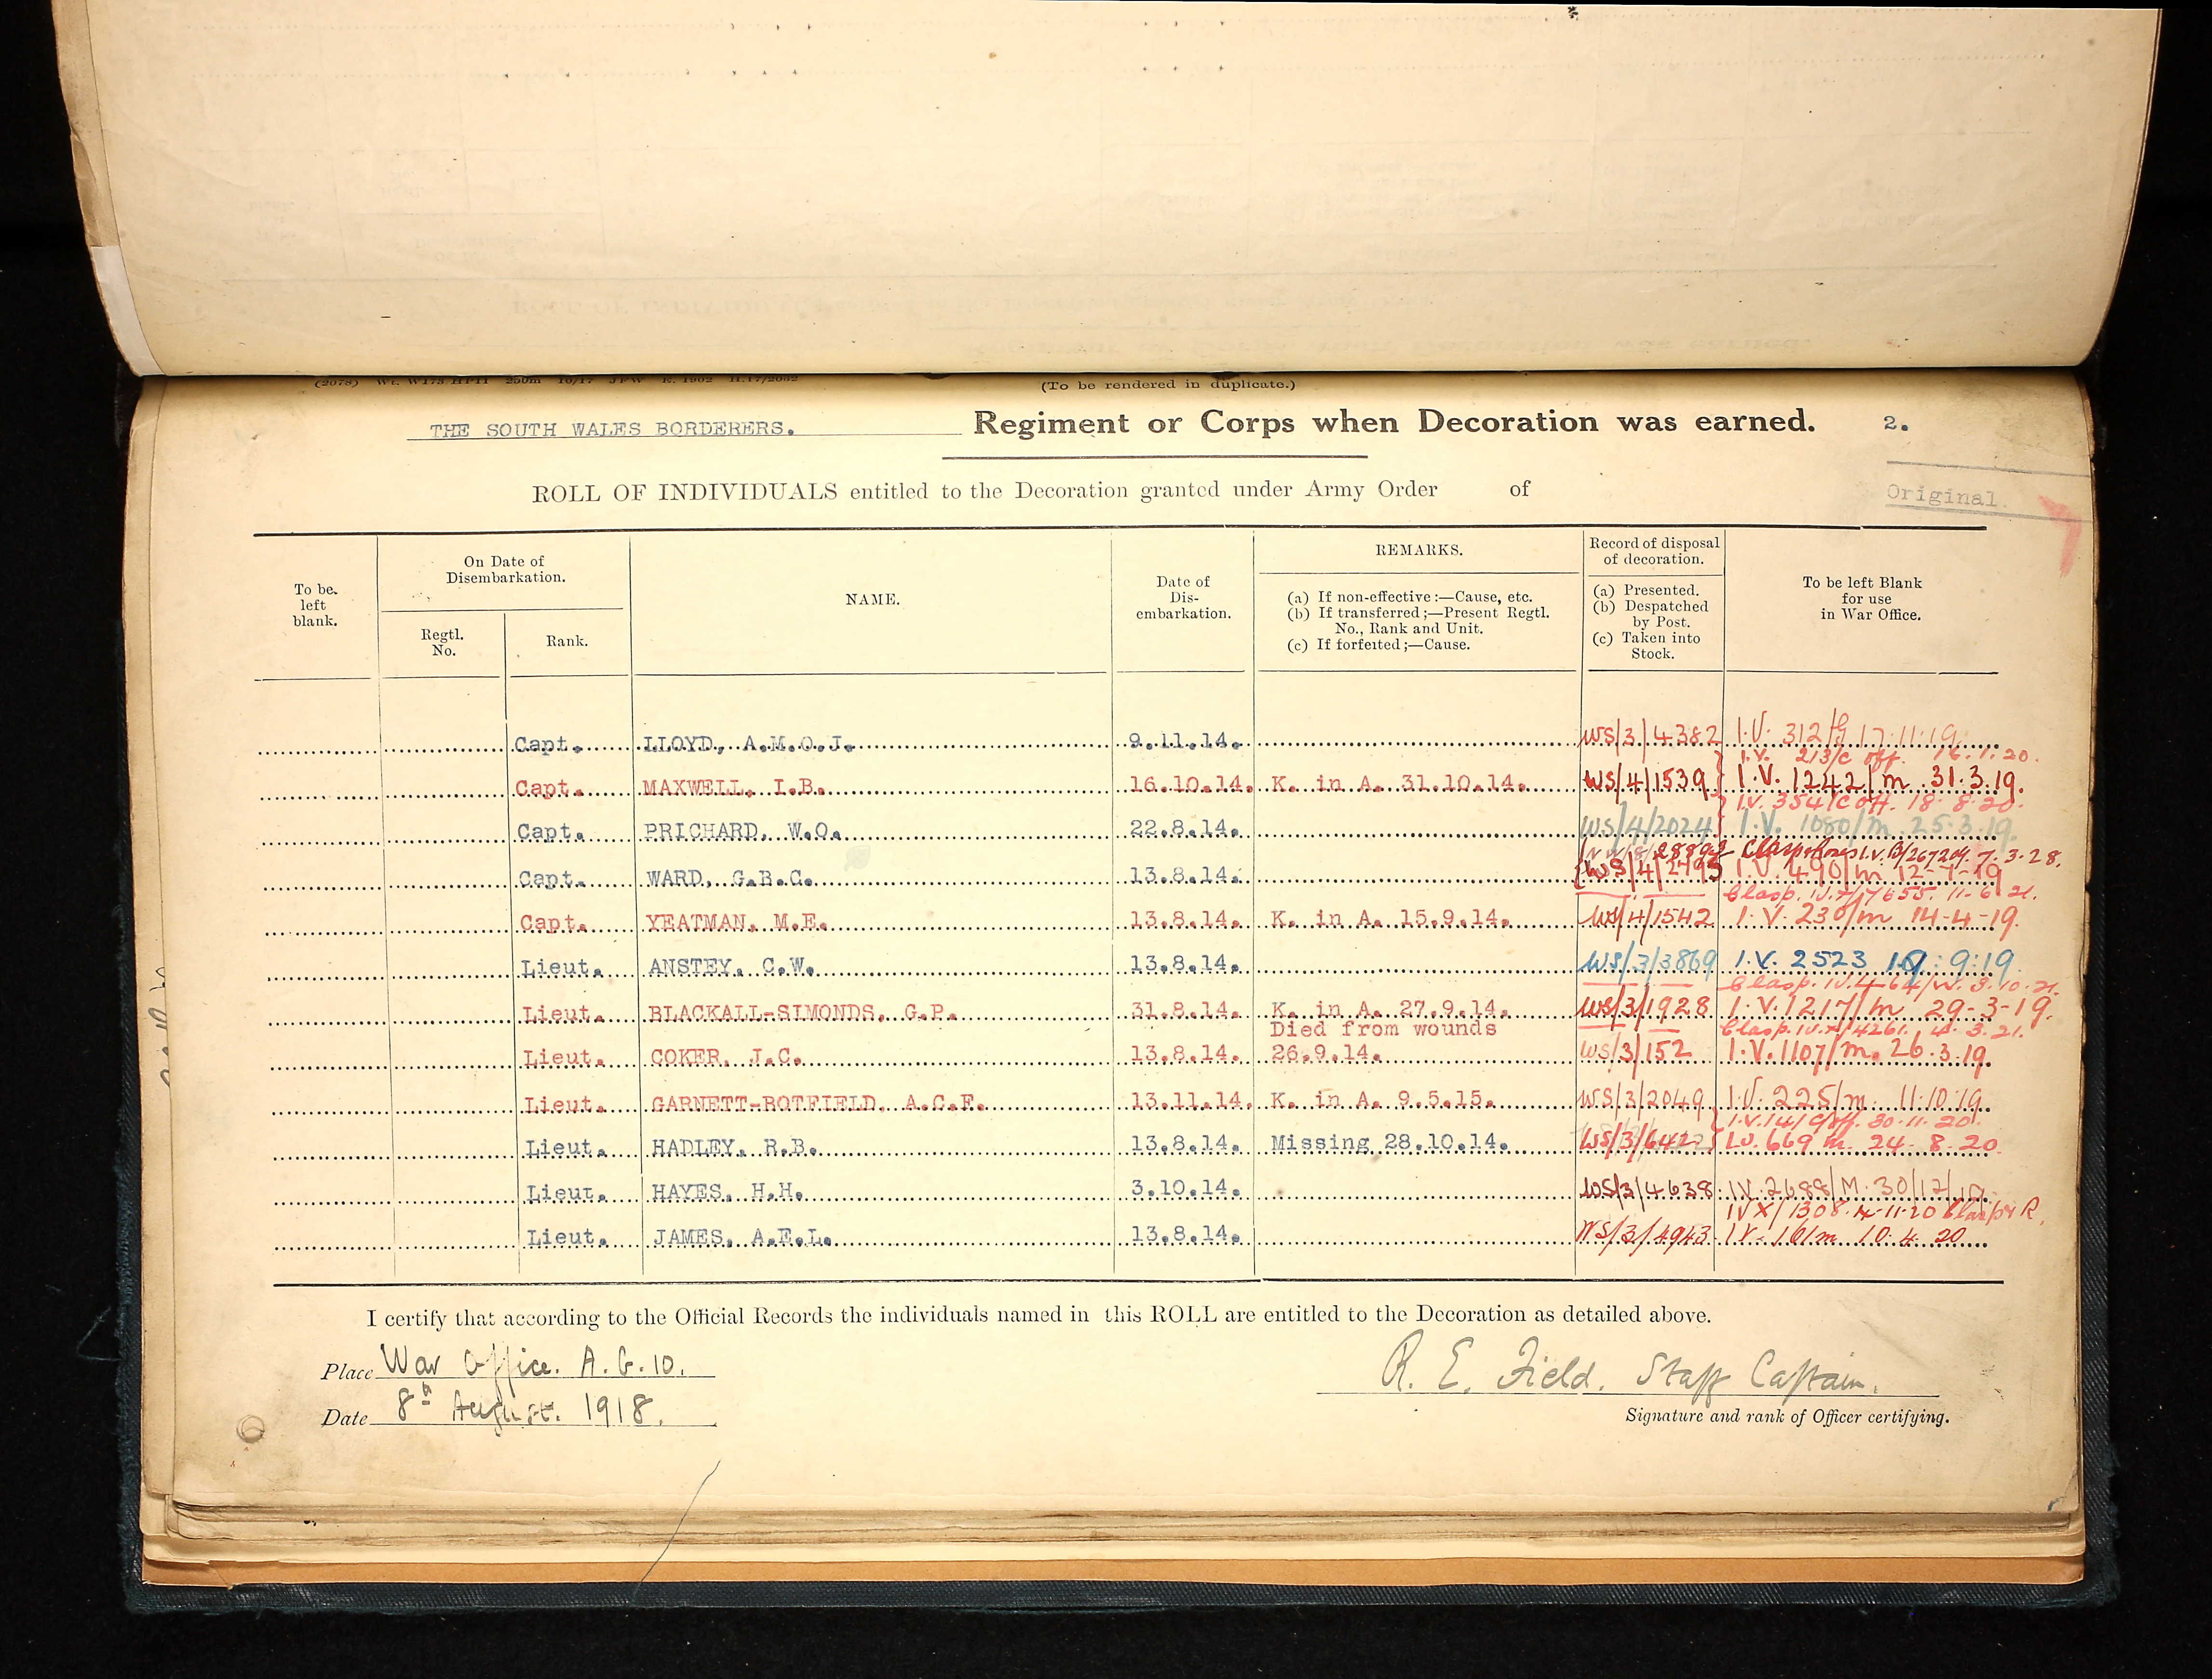 (To be rendered in duplicate.)
THE SOUTH WALES BORDERERS. Regiment or Corps when Decoration was earned. 2.
ROLL OF INDIVIDUALS entitled to the Decoration granted under Army Order of
Original.
To be left blank. On Date of Disembarkation. Regtl. No. Rank. NAME. Date of Dis-embarkation. REMARKS. (a) If non-effective:—Cause, etc. (b) If transferred;—Present Regtl. No., Rank and Unit. (c) If forfeited;—Cause. Record of disposal of decoration. (a) Presented. (b) Despatched by Post. (c) Taken into Stock. To be left Blank for use in War Office.
Capt. LLOYD, A.M.O.J. 9.11.14. WS/3/4382 I.V. 17.11.19.
I.V. 213/C off. 16.1.20.
Capt. MAXWELL, I.B. 16.10.14. K. in A. 31.10.14. WS/4/1539 I.V. 1242/m 31.3.19.
I.V. 354/C off. 18.8.20.
Capt. PRICHARD, W.O. 22.8.14. WS/4/2024 I.V. 1080/m 25.3.19.
7.3.28.
Capt. WARD, G.B.C. 13.8.14. WS/4/2795 I.V. 490/m
Clasp. 11.6.21.
Capt. YEATMAN, M.E. 13.8.14. K. in A. 15.9.14. WS/4/1542 I.V. 230/m 14-4-19.
Lieut. ANSTEY, C.W. 13.8.14. WS/3/3869 I.V. 2523 9:19
Clasp. 3.10.21.
Lieut. BLACKALL-SIMONDS, G.P. 31.8.14. K. in A. 27.9.14. WS/3/1928 I.V. 1217/m 29-3-19.
Died from wounds
Clasp. 3.21.
Lieut. COKER, J.C. 13.8.14. 26.9.14. WS/3/152 I.V. 1107/m. 26.3.19.
Lieut. GARNETT-BOTFIELD, A.C.F. 13.11.14. K. in A. 9.5.15. WS/3/2049 I.V. 225/m. 11.10.19.
I.V. 14/C off. 30.11.20.
Lieut. HADLEY, R.B. 13.8.14. Missing 28.10.14. WS/3/6422 I.V. 669 m. 24.8.20
Lieut. HAYES, H.H. 3.10.14. WS/3/4638 I.V. 2688/M. 30/12/19.
IVX/1308. 4-11-20 Clasp & R.
Lieut. JAMES, A.E.L. 13.8.14. WS/3/4943 I.V. 161m 10.4.20
I certify that according to the Official Records the individuals named in this ROLL are entitled to the Decoration as detailed above.
Place War Office. A.G.10.
R. E. Field. Staff Captain.
Date 8th August. 1918.
Signature and rank of Officer certifying.